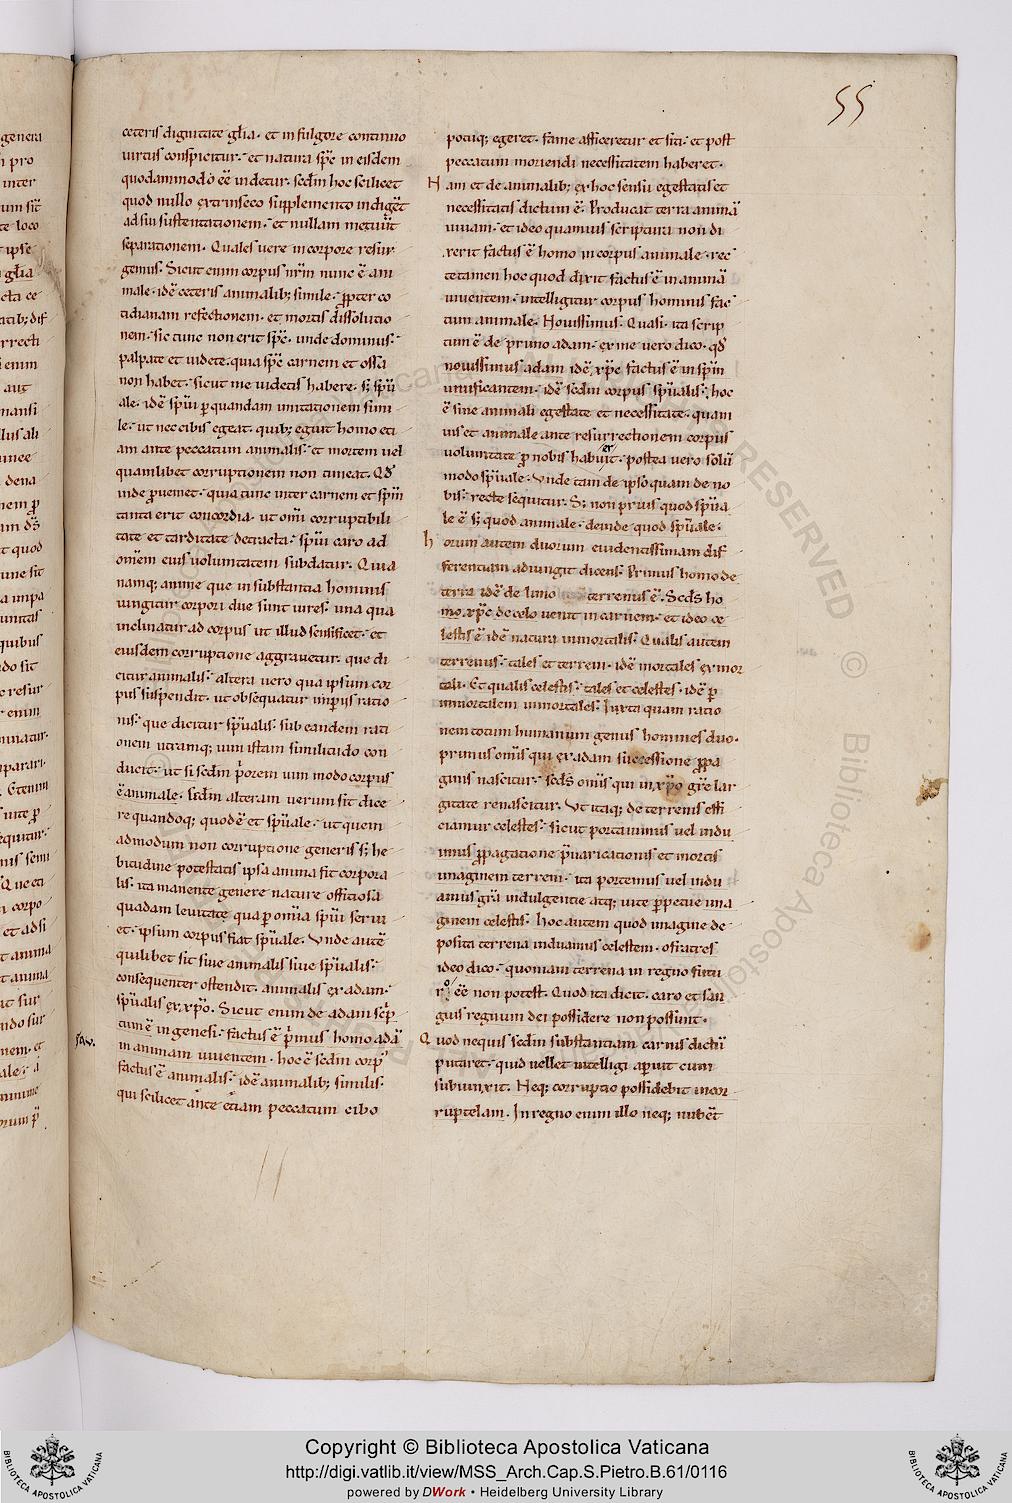 55
ceteris dignitate gl̄ia. et in fulgore continuo
uirtus conspicitur. et natura sp̄c in eisdem
quodammodo ēē uidetur. sedm̄ hoc scilicet
quod nullo extrinseco supplemento indiget
ad sui sustentationem. et nullam metuūt
separationem. Quales uere in corpore resur
gemus. Sicut enim corpus nr̄m nunc ē ani
male. idē ceteris animalib; simile. p̱pter co
tidianam refectionem. et mortis dissolutio
nem. sic tunc non erit sp̄c. unde dominus.
palpate et uidete. quia sp̄c carnem et ossa
non habet. sicut me uidetis habere. s; sp̄u
ale. idē sp̄ui ꝑ quandam imitationem simi
le. ut nec cibis egeat. quib; eguit homo eti
am ante peccatum animalis. et mortem uel
quamlibet corruptionem non timeat. Qd̄
inde ꝓueniet. quia tunc inter carnem et sp̄m
tanta erit concordia. ut om̄i corruptibili
tate et tarditate detracta. sp̄ui caro ad
om̄em eius uoluntatem subdatur. Quia
namq; anime que in substantia hominis
iungitur corpori due sunt uires. una qua
inclinatur ad corpus ut illud sensificet. et
eiusdem corruptione aggrauetur. que di
citur animalis. altera uero qua ipsum cor
pus suspendit. ut obsequatur imperiis ratio
nis. que dicitur sp̄ualis. sub eandem rati
onem utramq; uim istam similitudo con
ducit. ut si sedm̄ p̄orem uim modo corpus
ē animale. sedm̄ alteram uerum sit dice
re quandoq; quod ē et sp̄uale. ut quem
admodum non corruptione generis s; he
bitudine potestatis ipsa anima fit corpora
lis. ita manente genere nature officiosa
quadam leuitate qua ꝑ om̄ia sp̄ui serui
et. ipsum corpus fiat sp̄uale. Unde autē
quilibet sit siue animalis siue sp̄ualis.
consequenter ostendit. animalis ex adam.
sp̄ualis ex xp̄o. Sicut enim de adam scep̄
tum ē in genesi. factus ē p̄mus homo adā
in animam uiuentem. hoc ē sedm̄ corp̄
factus ē animalis. idē animalib; similis.
qui scilicet ante etiam peccatum cibo
potuq; egeret. fame afficeretur et siti. et post
peccatum moriendi necessitatem haberet.
Nam et de animalib; ex hoc sensu egestatis et
necessitatis dictum ē. Producat terra animā
uiuam. et ideo quamuis scriptura non di
xerit factus ē homo in corpus animale. rec
te tamen hoc quod dixit factus ē in animā
uiuentem. intelligitur corpus hominis fac
tum animale. Nouissimus. Quasi. ita scrip
tum ē de primo adam. ex me uero dico. qd̄
nouissimus adam idē xp̄c factus ē in sp̄m
uiuificantem. idē sedm̄ corpus sp̄ualis. hoc
ē sine animali egestate et necessitate. quam
uis et animale ante resurrectionem corpus
uoluntate ꝓ nobis habuerit. postea uero solū
modo sp̄uale. Unde tam de ipso quam de no
bis. recte sequitur. S; non prius quod sp̄ua
le ē s; quod animale. deinde quod sp̄uale.
horum autem duorum euidentissimam dif
ferentiam adiungit dicens. Primus homo de
terra idē de limo terrenus ē. Scd̄s ho
mo xp̄c de celo uenit in carnem. et ideo ce
lestis ē idē natura immortalis. Qualis autem
terrenus. tales et terreni. idē mortales ex mor
tali. Et qualis celestis. tales et celestes. idē ꝑ
immortalem immortales. Iuxta quam ratio
nem totum humanum genus homines duo.
primus om̄is qui ex adam successione ꝓpa
ginis nascitur. scd̄s om̄is qui in xp̄o gr̄e lar
gitate renascitur. Ut itaq; de terrenis effi
ciamur celestes. sicut portauimus uel indu
imus ꝓpagatione p̄uaricationis et mortis
imaginem terreni. ita portemus uel indu
amus gr̄a indulgentie atq; uite ꝑpetue ima
ginem celestis. hoc autem quod imagine de
posita terrena induamus celestem. o fratres
ideo dico. quoniam terrena in regno futu
ro ēē non potest. Quod ita dicit. caro et san
guis regnum dei possidere non possunt.
Quod nequis sedm̄ substantiam carnis dictū
putaret. quid uellet intelligi aperuit cum
subiunxit. Neq; corruptio possidebit incor
ruptelam. In regno enim illo neq; nubēt
Copyright © Biblioteca Apostolica Vaticana
http://digi.vatlib.it/view/MSS_Arch.Cap.S.Pietro.B.61/0116
powered by DWork • Heidelberg University Library